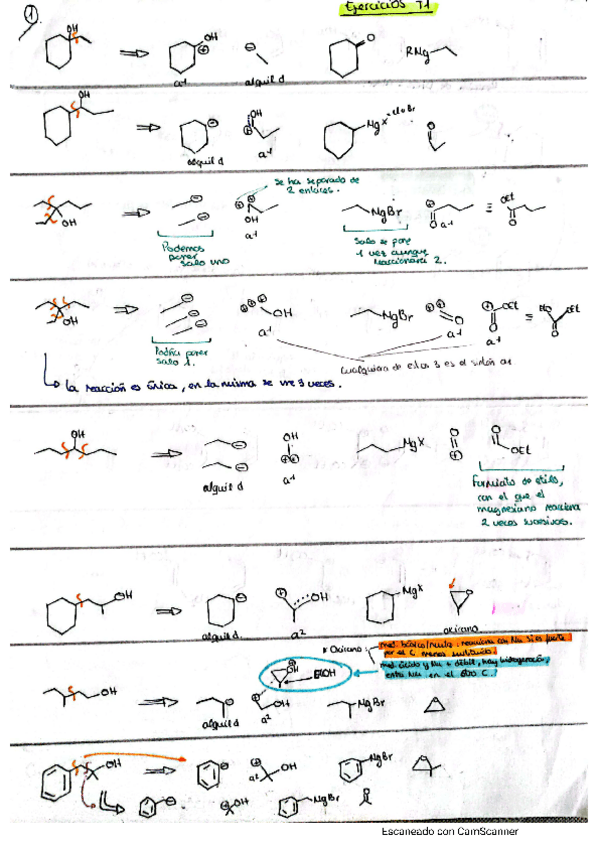 Ejercicios T1
1
OH
OH
a¹
alquil d
O
RMg
OH
alquil d
OH
a¹
MgX
O
se ha separado de
2 enlaces.
OH
Podemos
poner
solo uno
OH
a¹
MgBr
Solo se pone
1 vez aunque
reaccionará 2.
O
a¹
OEt
O
OH
Podría poner
solo 1.
OH
a¹
MgBr
O
OEt
O
a¹
EtO
OEt
O
Cualquiera de estos 3 es el sintón a¹
La reacción es única, en la misma se une 3 veces.
OH
alquil d
OH
a¹
MgX
O
O
OEt
Formiato de etilo,
con el que el
magnesiano reacciona
2 veces sucesivas.
OH
alquil d.
OH
a²
MgX
O
oxirano
Oxirano:
med. básico/neutro: reacciona con Nu
por el C menos sustituido.
med. ácido y Nu débil, hay
entra Nu en el C.
OH
EtOH
OH
alquil d
OH
a²
MgBr
O
OH
a²
OH
MgBr
O
OH
MgBr
O
Escaneado con CamScanner